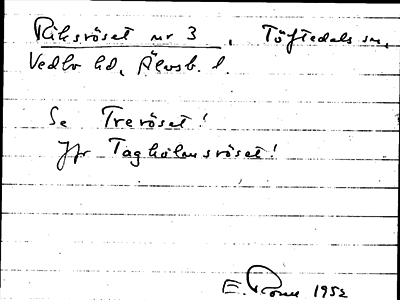 Riksröset nr 3, Töftedals sn,
Vedbo hd, Älvsb. l.
Se Treröset!
Jfr Tagholmsröset!
E. 1952